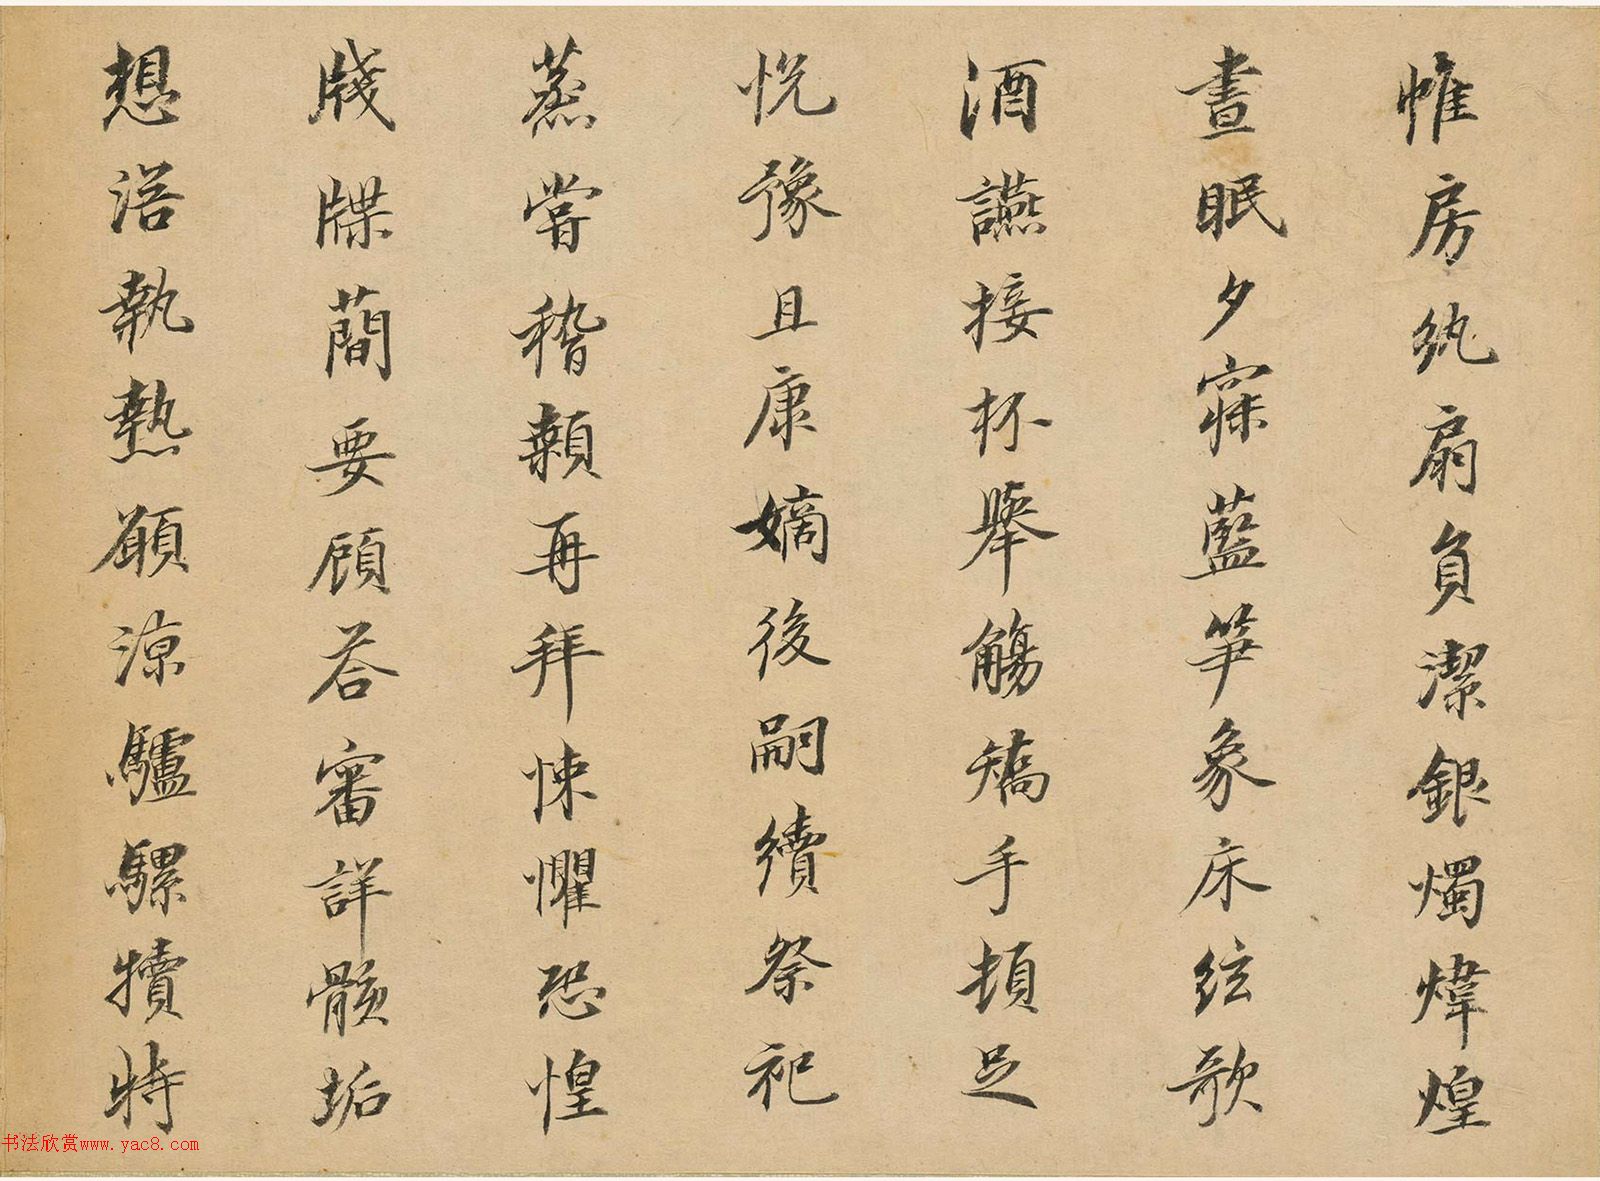 帷房紈扇負潔銀燭煒煌
晝眠夕寐藍笋象床絃歌
酒讌接杯舉觴矯手頓足
悅豫且康嫡後嗣續祭祀
蒸嘗稽顙再拜悚懼恐惶
牋牒蕳要顧荅審詳骸垢
想浴執熱願涼驢騾犢特
书法欣赏www.yac8.com